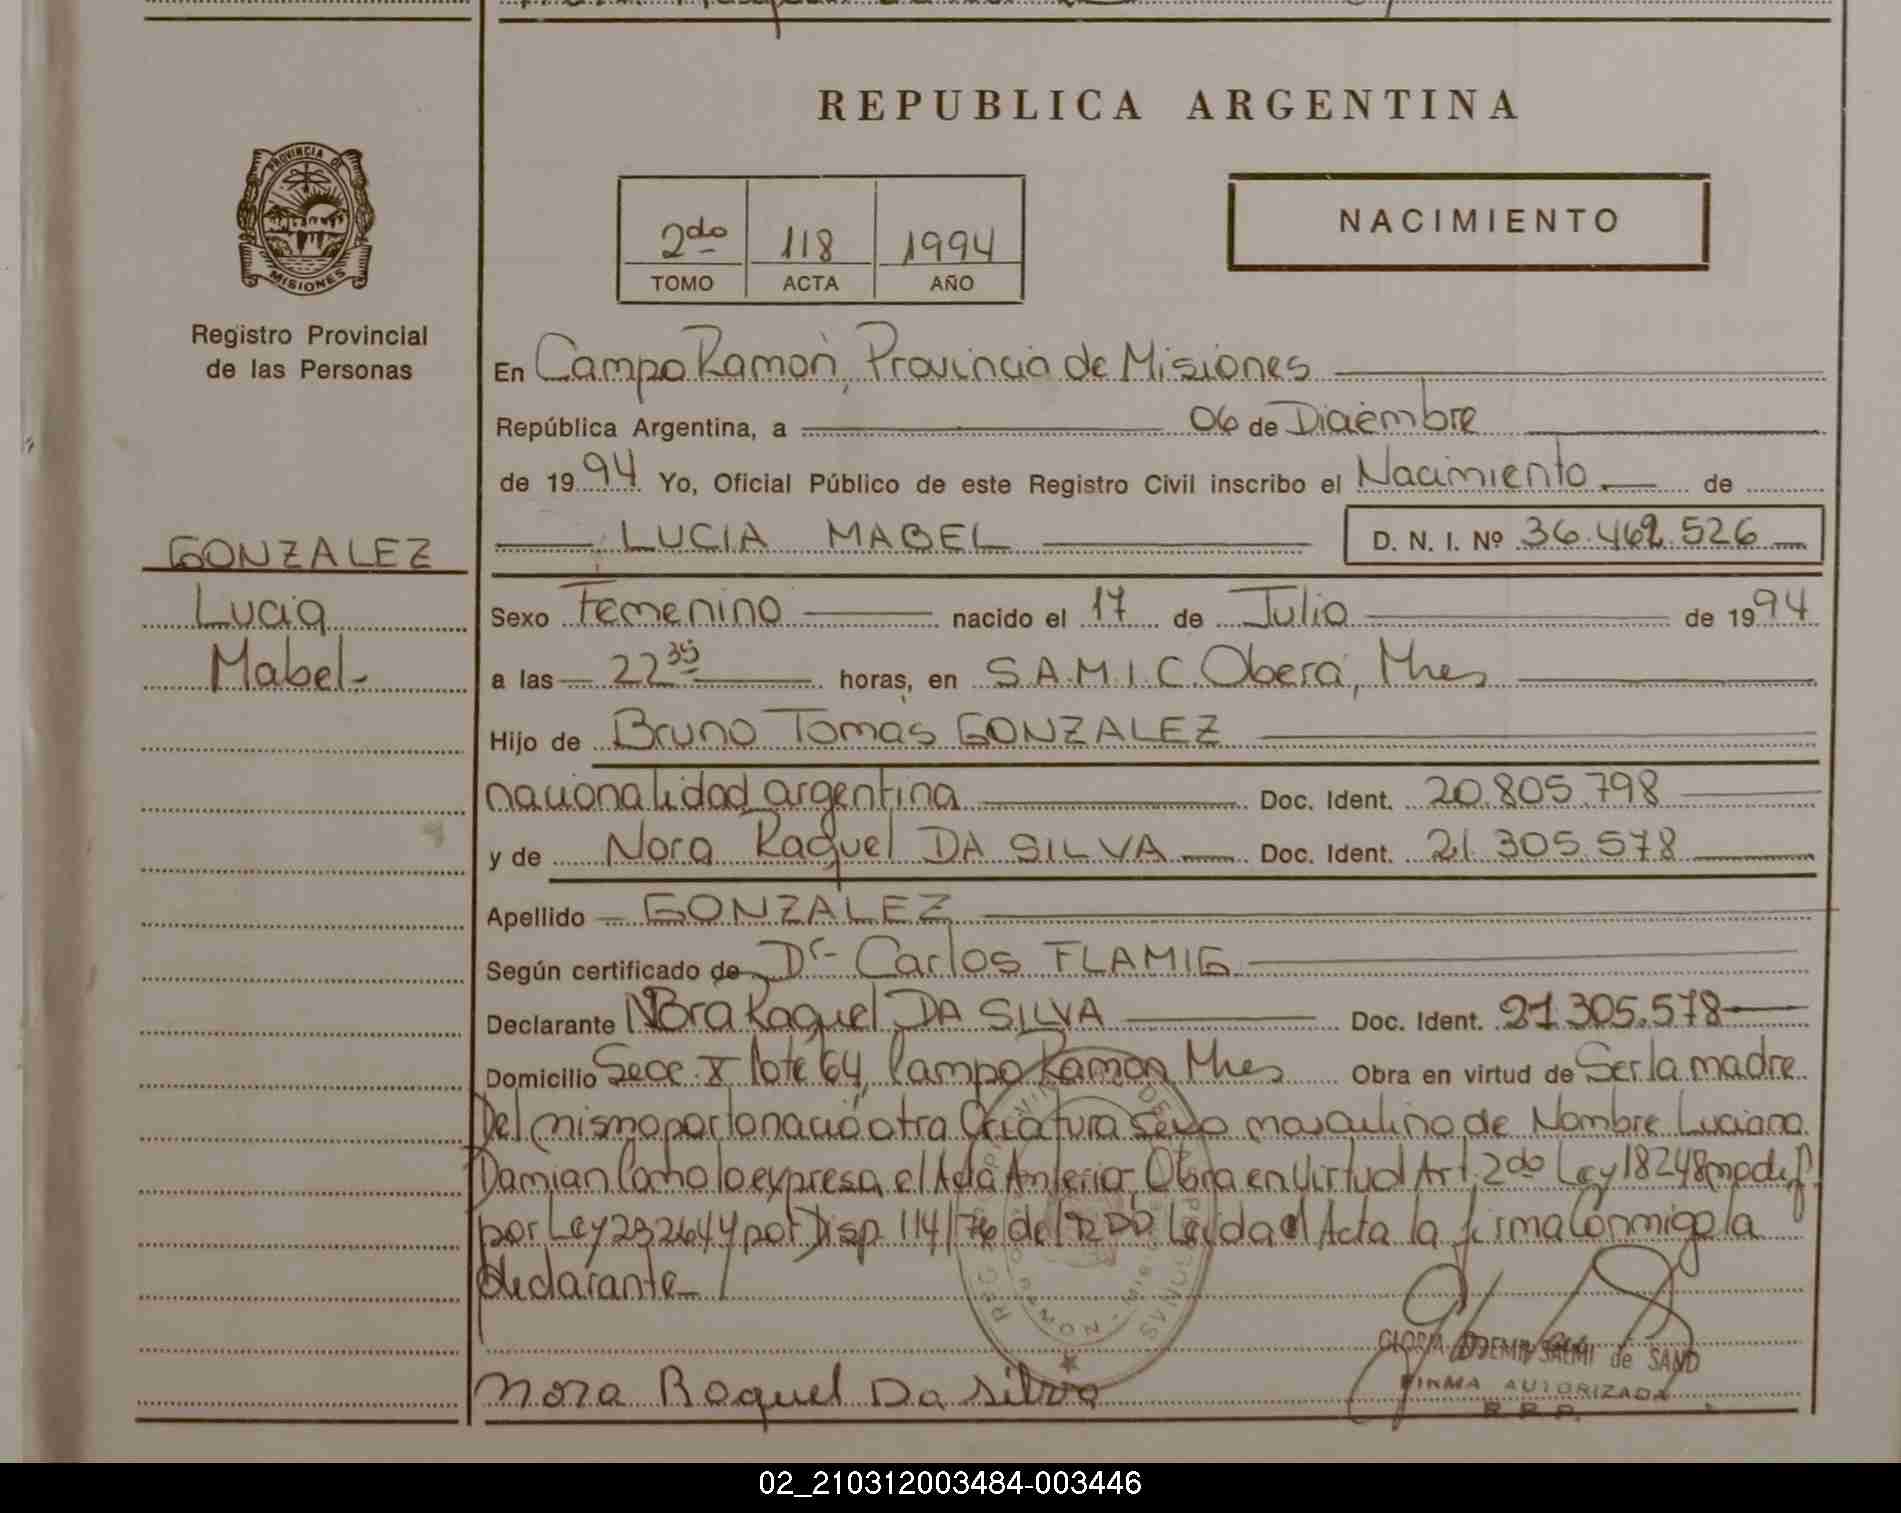 REPUBLICA ARGENTINA
PROVINCIA DE
MISIONES
Registro Provincial
de las Personas
NACIMIENTO
2do 118 1994
TOMO ACTA AÑO
En Campo Ramón, Provincia de Misiones
República Argentina, a 06 de Diciembre
de 1994 Yo, Oficial Público de este Registro Civil inscribo el Nacimiento de
LUCIA MABEL D. N. I. Nº 36.462.526
GONZALEZ
Lucia
Mabel-
Sexo Femenino nacido el 17 de Julio de 1994
a las 22 35 horas, en S.A.M.I.C. Oberá, Mnes
Hijo de Bruno Tomas GONZALEZ
nacionalidad argentina Doc. Ident. 20.805.798
y de Nora Raquel DA SILVA Doc. Ident. 21.305.578
Apellido GONZALEZ
Según certificado de Dr- Carlos FLAMIG
Declarante Nora Raquel DA SILVA Doc. Ident. 21.305.578
Domicilio Secc. X lote 64, Campo Ramon Mnes Obra en virtud de Ser la madre
Del mismo parto nació otra Criatura Sexo masculino de Nombre Luciano
Damian Como lo expresa el Acta Anterior Obra en Virtud Art. 2do Ley 18248 modif.
por Ley 23264 y por Disp. 114/76 del R.D.P. Leida el Acta la firma Conmigo la
declarante
Nora Raquel Da Silva
GLORIA de SAND
FIRMA AUTORIZADA
R. P. P.
02_210312003484-003446